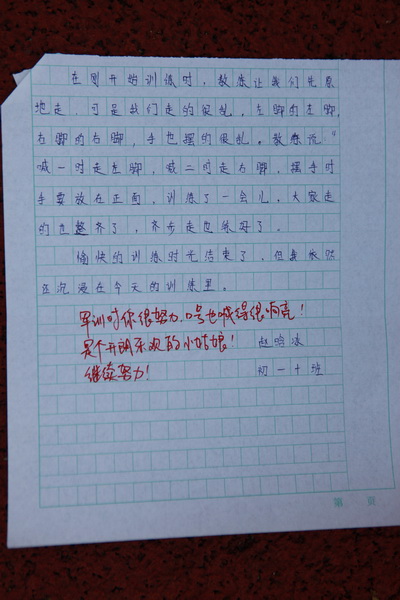 在刚开始训练时，教练让我们先原
地走，可是我们走的很乱，左脚的左脚，
右脚的右脚，手也摆的很乱。教练说"
喊一时走左脚，喊二时走右脚，摆手时
手要放在正面，训练了一会儿，大家走
的也整齐了，齐步走也练好了。
愉快的训练时光结束了，但我依然
还沉浸在今天的训练里。
军训时你很努力、口号也喊得很响亮！
是个开朗乐观的小姑娘！
赵晗冰
继续努力！
初一十班
第 页